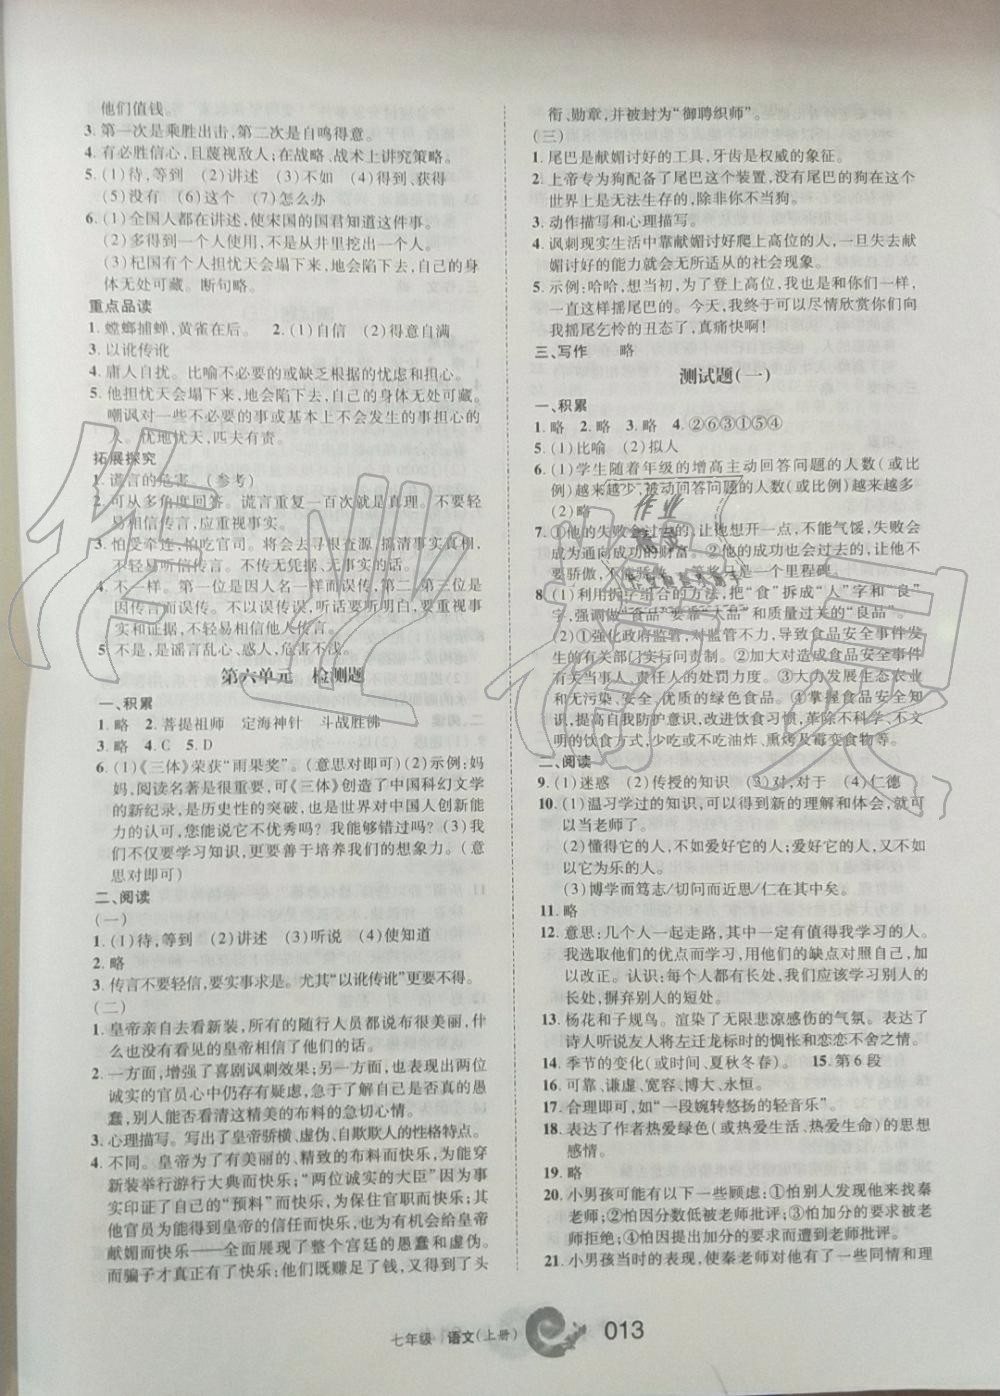 他们值钱。
3. 第一次是乘胜出击,第二次是自鸣得意。
4. 有必胜信心,且蔑视敌人;在战略、战术上讲究策略。
5. (1)待,等到 (2)讲述 (3)不如 (4)得到、获得
(5)没有 (6)这个 (7)怎么办
6. (1)全国人都在讲述,使宋国的国君知道这件事。
(2)多得到一个人使用,不是从井里挖出一个人。
(3)杞国有个人担忧天会塌下来,地会陷下去,自己的身
体无处可藏。断句略。
重点品读
1. 螳螂捕蝉,黄雀在后。 2. (1)自信 (2)得意自满
3. 以讹传讹
4. 庸人自扰。比喻不必要的或缺乏根据的忧虑和担心。
5. 他担忧天会塌下来,地会陷下去,自己的身体无处可藏。
嘲讽对一些不必要的事或基本上不会发生的事担心的
人。忧地忧天,匹夫有责。
拓展探究
1. 谎言的危害。(参考)
2. 可从多角度回答。谎言重复一百次就是真理。不要轻
易相信传言,应重视事实。
3. 怕受牵连,怕吃官司。将会去寻根查源,搞清事实真相。
不轻易听信传言。不传谣,不信谣。
4. 不一样。第一位是因人名一样而误传,第二、第三位是
因传言而误传。不要误传误听,听话要听明白,听事要重
事实和证据,不轻易相信传言,不误传误信。
5. 不是,是谣言乱心、惑人,危害不浅。
第六单元 检测题
一、积累
1. 略 2. 菩提祖师 定海神针 斗战胜佛
3. 略 4. C 5. D
6. (1)《三体》荣获“雨果奖”。(意思对即可)(2)示例:妈
妈,阅读名著是很重要,可《三体》创造了中国科幻文学
的新纪录,是历史性的突破,也是世界对中国人创新能
力的认可,您能说它不优秀吗?我能够错过吗?(3)我
们不仅要学习知识,更要善于培养我们的想象力。(意
思对即可)
二、阅读
(一)
1. (1)待,等到 (2)讲述 (3)听说 (4)使知道
2. 略
3. 传言不要轻信,要实事求是。尤其“以讹传讹”更要不得。
(二)
1. 皇帝亲自去看新装,所有的随行人员都说布很美丽,什
么也没有看见的皇帝相信了他们的话。
2. 一方面,增强了喜剧讽刺效果;另一方面也表现出两位
诚实的官员心中仍存有疑虑,急于了解自己是否真的愚
蠢,别人能否看清这精美的布料的急切心情。
3. 心理描写。写出了皇帝骄横、虚伪、自欺欺人的性格特点。
4. 不同。皇帝为了有美丽的、精致的布料而快乐,能够穿
新装举行游行大典而快乐;“两位诚实的大臣”因为事
实印证了自己的“预料”而快乐,为保住官职而快乐;其
他官员为能得到皇帝的信任而快乐,也为有机会给皇帝
献媚而快乐——全面展现了整个宫廷的愚蠢和虚伪。
而骗子才真正有了快乐;他们既赚足了钱,又得到了头
衔、勋章,并被封为“御聘织师”。
(三)
1. 尾巴是献媚讨好的工具,牙齿是权威的象征。
2. 上帝专为狗配备了尾巴这个装置,没有尾巴的狗在这个
世界上是无法生存的,除非你不当狗。
3. 动作描写和心理描写。
4. 讽刺现实生活中靠献媚讨好爬上高位的人,一旦失去献
媚讨好的能力就会无所适从的社会现象。
5. 示例:哈哈,想当初,为了登上高位,我也和你们一样,
一直这样摇尾巴的。今天,我终于可以尽情欣赏你们向
我摇尾乞怜的丑态了,真痛快啊!
三、写作 略
测试题(一)
一、积累
1. 略 2. 略 3. 略 4. ②⑥③①⑤④
5. (1)比喻 (2)拟人
6. (1)学生随着年级的增高主动回答问题的人数(或比
例)越来越少,被动回答问题的人数(或比例)越来越多
(2)略
7. ①他的失败会过去的,让他想开一点,不能气馁,失败会
成为通向成功的财富 ②他的成功也会过去的,让他不要
骄傲,不能骄傲,一等奖只是一个里程碑。
8. (1)利用拆字组合的方法,把“食”拆成“人”字和“良”
字,强调做“食品”要靠“人品”和质量过关的“良品”。
(2)①强化政府监管,对监管不力,导致食品安全事件发
生的有关部门实行问责制。②加大对造成食品安全事件
有关当事人、责任人的处罚力度。③大力发展生态农业
和无污染、安全、优质的绿色食品。④掌握食品安全知
识,提高自我防护意识,改变饮食习惯,革除不科学、不文
明的饮食方式,少吃或不吃油炸、熏烤及霉变食物等。
二、阅读
9. (1)迷惑 (2)传授的知识 (3)对,对于 (4)仁德
10. (1)温习学过的知识,可以得到新的理解和体会,就可
以当老师了。
(2)懂得它的人,不如爱好它的人;爱好它的人,又不如
以它为乐的人。
(3)博学而笃志/切问而近思/仁在其中矣。
11. 略
12. 意思:几个人一起走路,其中一定有值得我学习的人。
我选取他们的优点而学习,用他们的缺点对照自己,加
以改正。认识:每个人都有长处,我们应该学习别人的
长处,摒弃别人的短处。
13. 杨花和子规鸟。渲染了无限悲凉感伤的气氛。表达了
诗人听说友人将左迁龙标时的惆怅和恋恋不舍之情。
14. 季节的变化(或时间、夏秋冬春)。 15. 第6段
16. 可靠、谦虚、宽容、博大、永恒。
17. 合理即可,如“一段婉转悠扬的轻音乐”。
18. 表达了作者热爱绿色(或热爱生活、热爱生命)的思想
感情。
19. 略
20. 小男孩可能有以下一些顾虑:①怕别人发现他来找秦
老师;②怕因分数低被老师批评;③怕加分的要求被老
师拒绝;④怕因加分的要求而遭到老师批评。
21. 小男孩当时的表现,使秦老师对他有了一些同情和理
七年级 语文(上册) 013